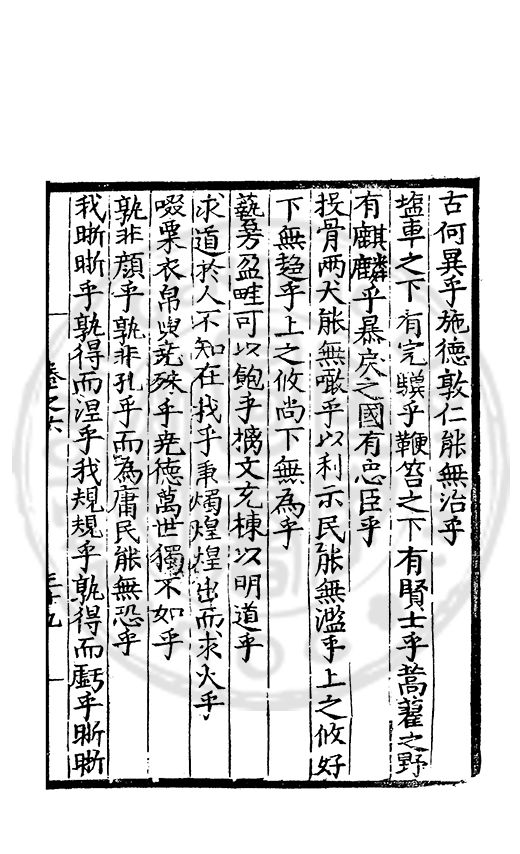 古何異乎施德敦仁能無治乎
塩車之下有完驥乎鞭笞之下有賢士乎蒿藋之野
有麒麟乎暴戾之國有忠臣乎
投骨兩犬能無噉乎以利示民能無濫乎上之攸好
下無趋乎上之攸尚下無為乎
藝蒭盈畦可以飽乎摛文充棟以明道乎
求道於人不知在我乎秉燭煌煌出而求火乎
啜粟衣帛與堯殊乎堯德萬世獨不如乎
孰非顔乎孰非孔乎而為庸民能無恐乎
我晣晣乎孰得而涅乎我規規乎孰得而虧乎晣晣
卷之六
三十九